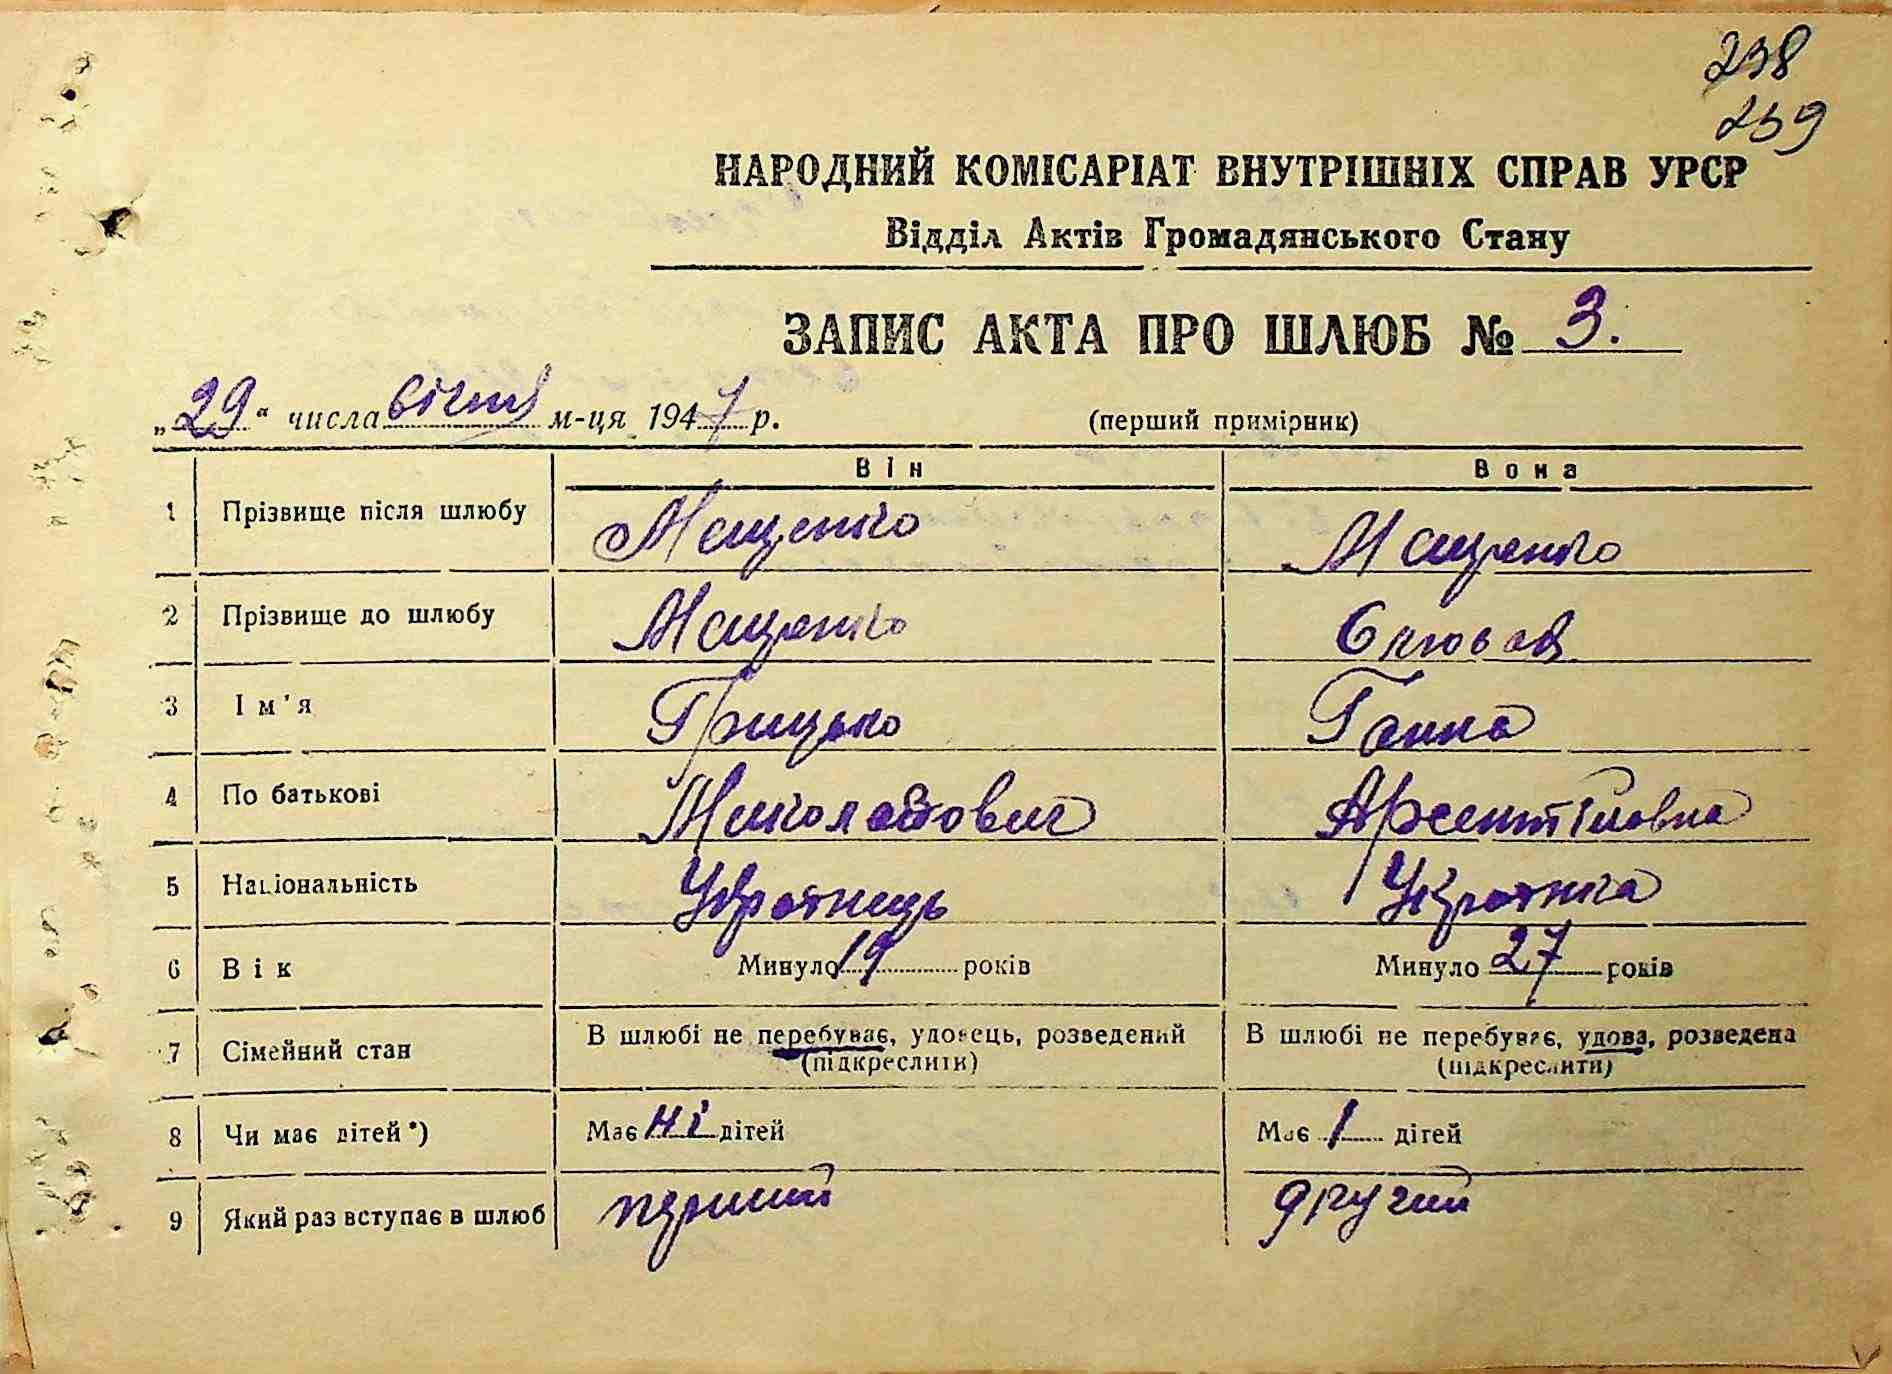 238
239
НАРОДНИЙ КОМІСАРІАТ ВНУТРІШНІХ СПРАВ УРСР
Відділ Актів Громадянського Стану
ЗАПИС АКТА ПРО ШЛЮБ № 3.
„29“ числа січня м-ця 1947 р. (перший примірник)
Він Вона
1 Прізвище після шлюбу Мащенко Мащенко
2 Прізвище до шлюбу Мащенко
3 Ім'я Грицько Ганна
4 По батькові Миколайович Арсентіївна
5 Національність Українець Українка
6 Вік Минуло 19 років Минуло 27 років
7 Сімейний стан В шлюбі не перебуває, удовець, розведений (підкреслити) В шлюбі не перебуває, удова, розведена (підкреслити)
8 Чи має дітей*) Має ні дітей Має 1 дітей
9 Який раз вступає в шлюб перший другий